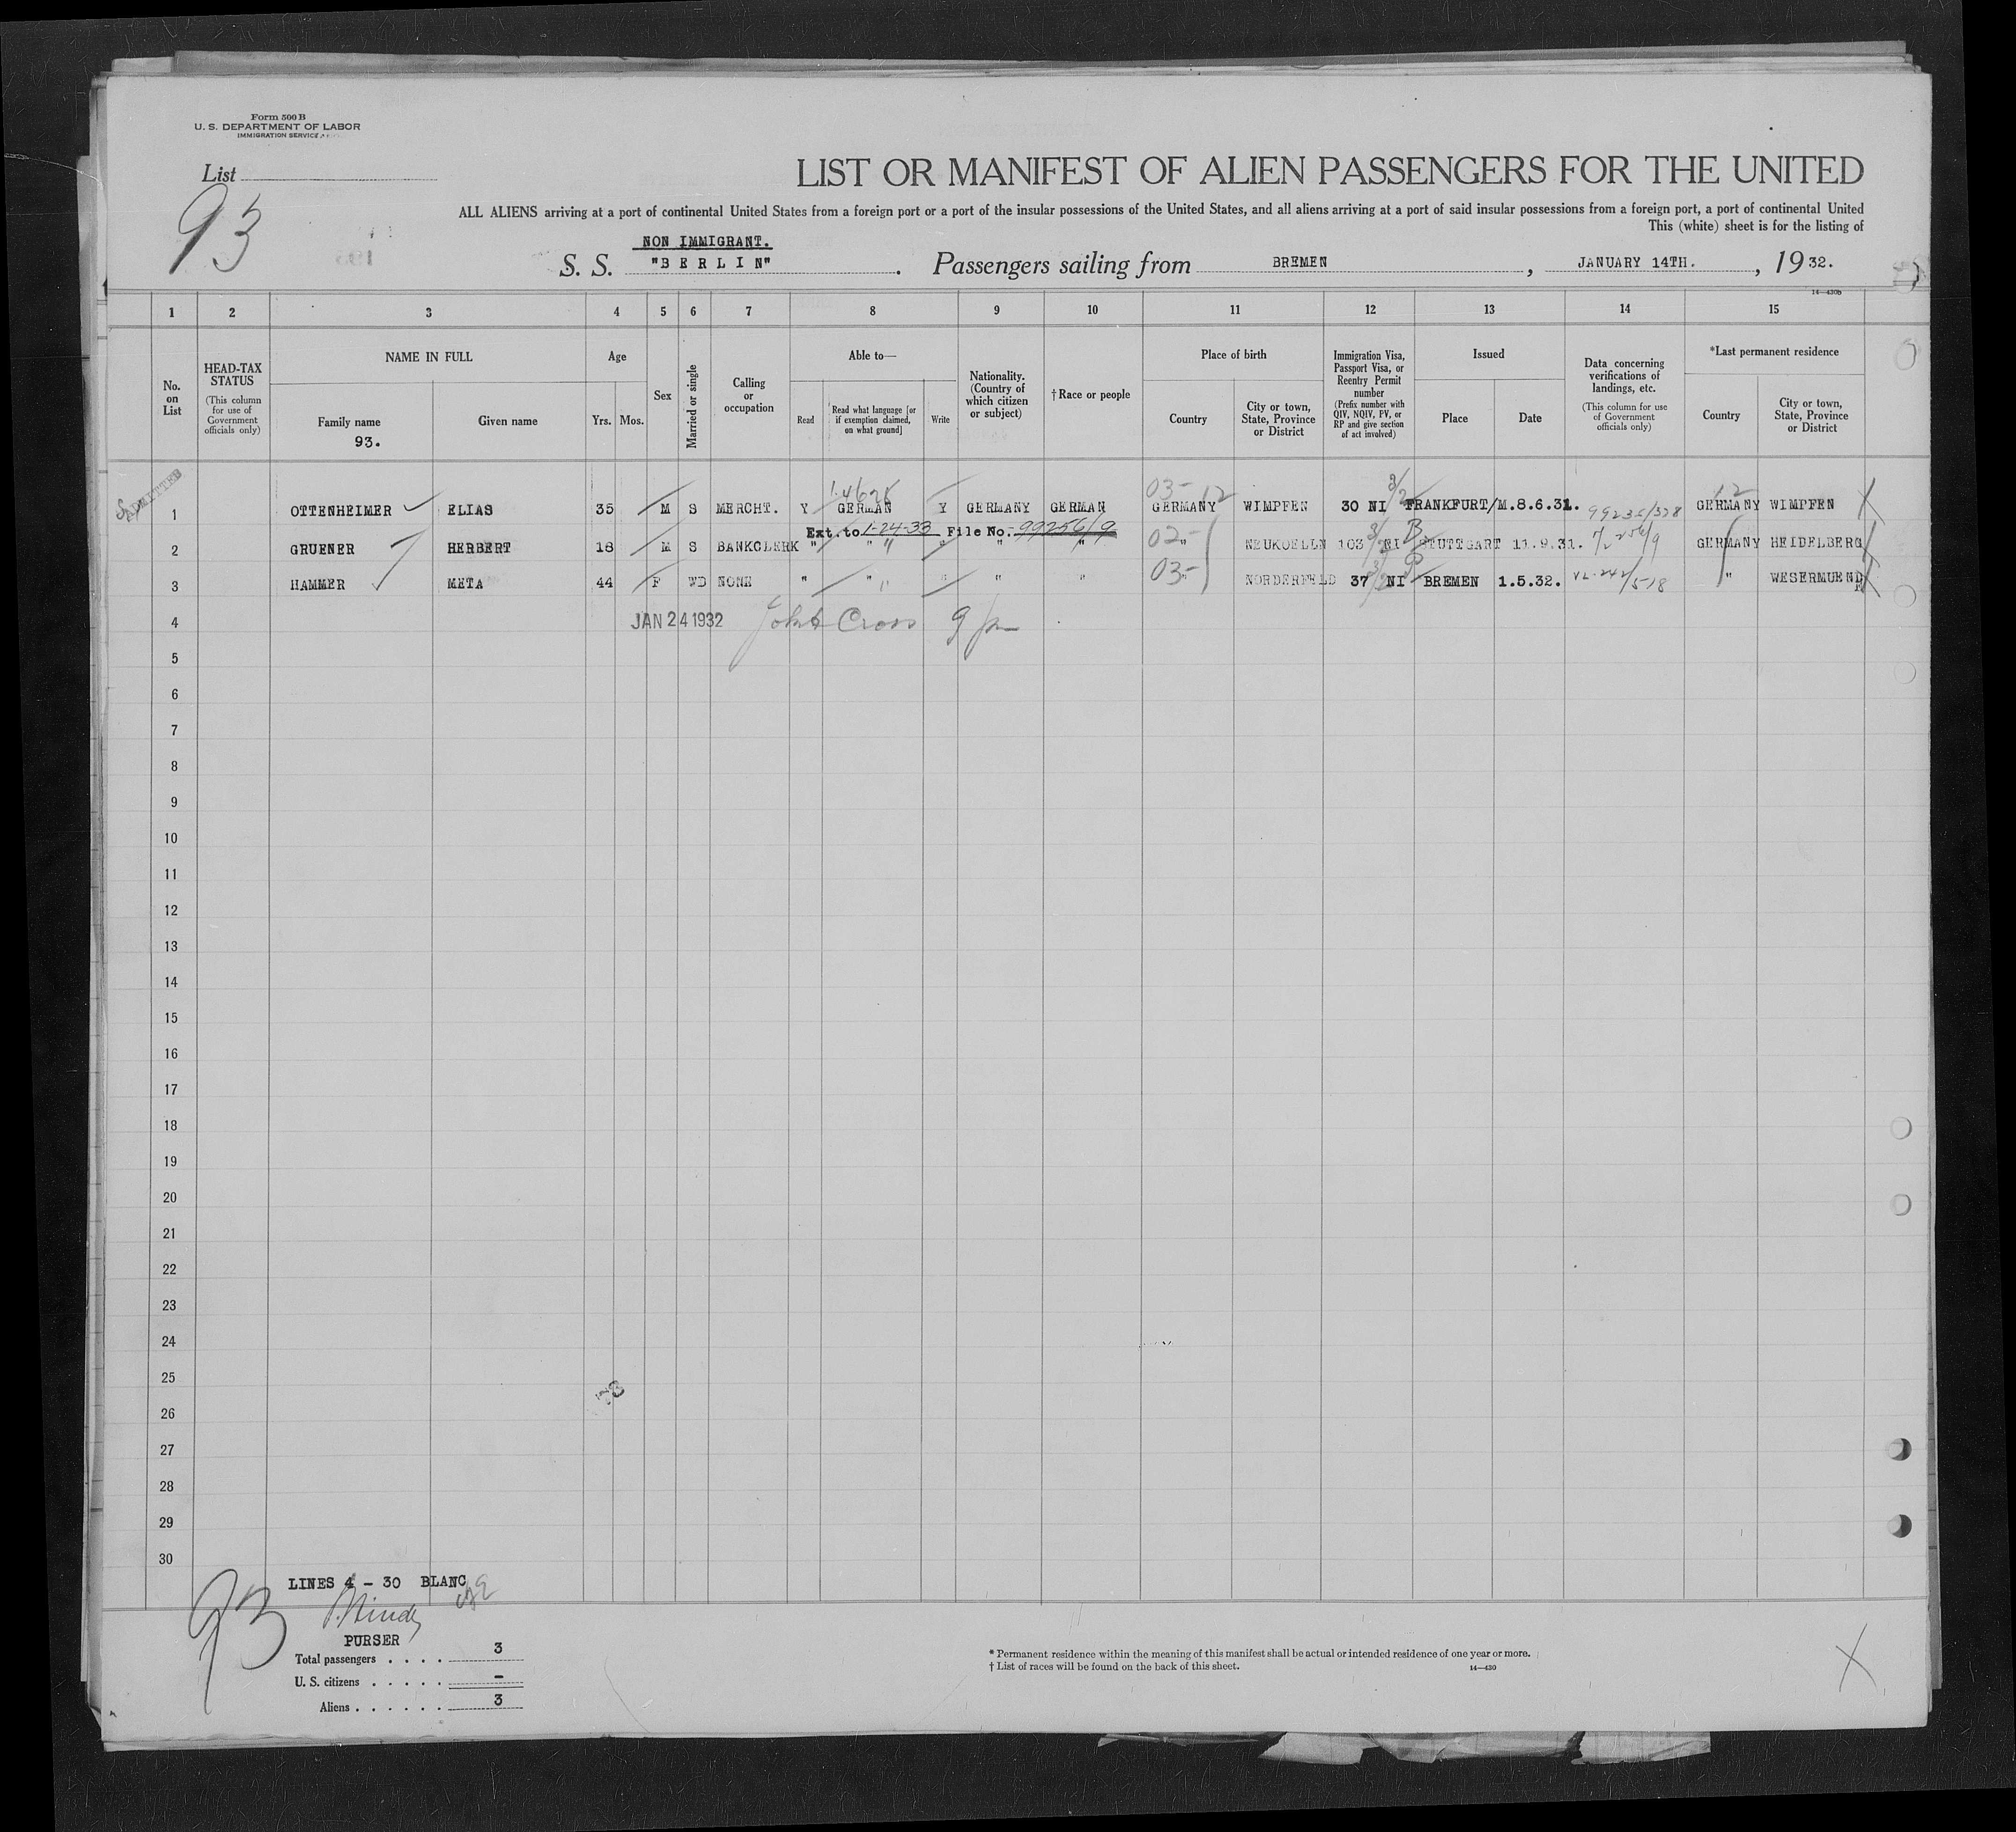 Form 500 B
U. S. DEPARTMENT OF LABOR
IMMIGRATION SERVICE
List
93
LIST OR MANIFEST OF ALIEN PASSENGERS FOR THE UNITED
ALL ALIENS arriving at a port of continental United States from a foreign port or a port of the insular possessions of the United States, and all aliens arriving at a port of said insular possessions from a foreign port, a port of continental United
This (white) sheet is for the listing of
NON IMMIGRANT.
S. S. "B E R L I N". Passengers sailing from BREMEN, JANUARY 14TH., 19 32.
14—430b
1 2 3 4 5 6 7 8 9 10 11 12 13 14 15
No. on List
HEAD-TAX STATUS (This column for use of Government officials only)
NAME IN FULL
Family name
93.
Given name
Age
Yrs. Mos.
Sex
Married or single
Calling or occupation
Able to—
Read
Read what language [or if exemption claimed, on what ground]
Write
Nationality. (Country of which citizen or subject)
† Race or people
Place of birth
Country
City or town, State, Province or District
Immigration Visa, Passport Visa, or Reentry Permit number (Prefix number with QIV, NQIV, PV, or RP and give section of act involved)
Issued
Place
Date
Data concerning verifications of landings, etc. (This column for use of Government officials only)
*Last permanent residence
Country
City or town, State, Province or District
ADMITTED
03- 12 3/2 12
1 OTTENHEIMER ELIAS 35 M S MERCHT. Y GERMAN Y GERMANY GERMAN GERMANY WIMPFEN 30 NI FRANKFURT/M. 8.6.31. GERMANY WIMPFEN
Ext. to 1-24-33 File No. 99256/9
2 GRUENER HERBERT 18 M S BANKCLERK " " " " " 02- " NEUKOELLN 103 3/2 NI STUTTGART 11.9.31. GERMANY HEIDELBERG
3 HAMMER META 44 F WD NONE " " " " " 03- " NORDERFELD 37 3/2 NI BREMEN 1.5.32. " WESERMUENDE
4 JAN 24 1932 John Cross
5
6
7
8
9
10
11
12
13
14
15
16
17
18
19
20
21
22
23
24
25
26
27
28
29
30
LINES 4 - 30 BLANC
93
PURSER
Total passengers . . . . 3
U. S. citizens . . . . . —
Aliens . . . . . . 3
* Permanent residence within the meaning of this manifest shall be actual or intended residence of one year or more.
† List of races will be found on the back of this sheet.
14—430